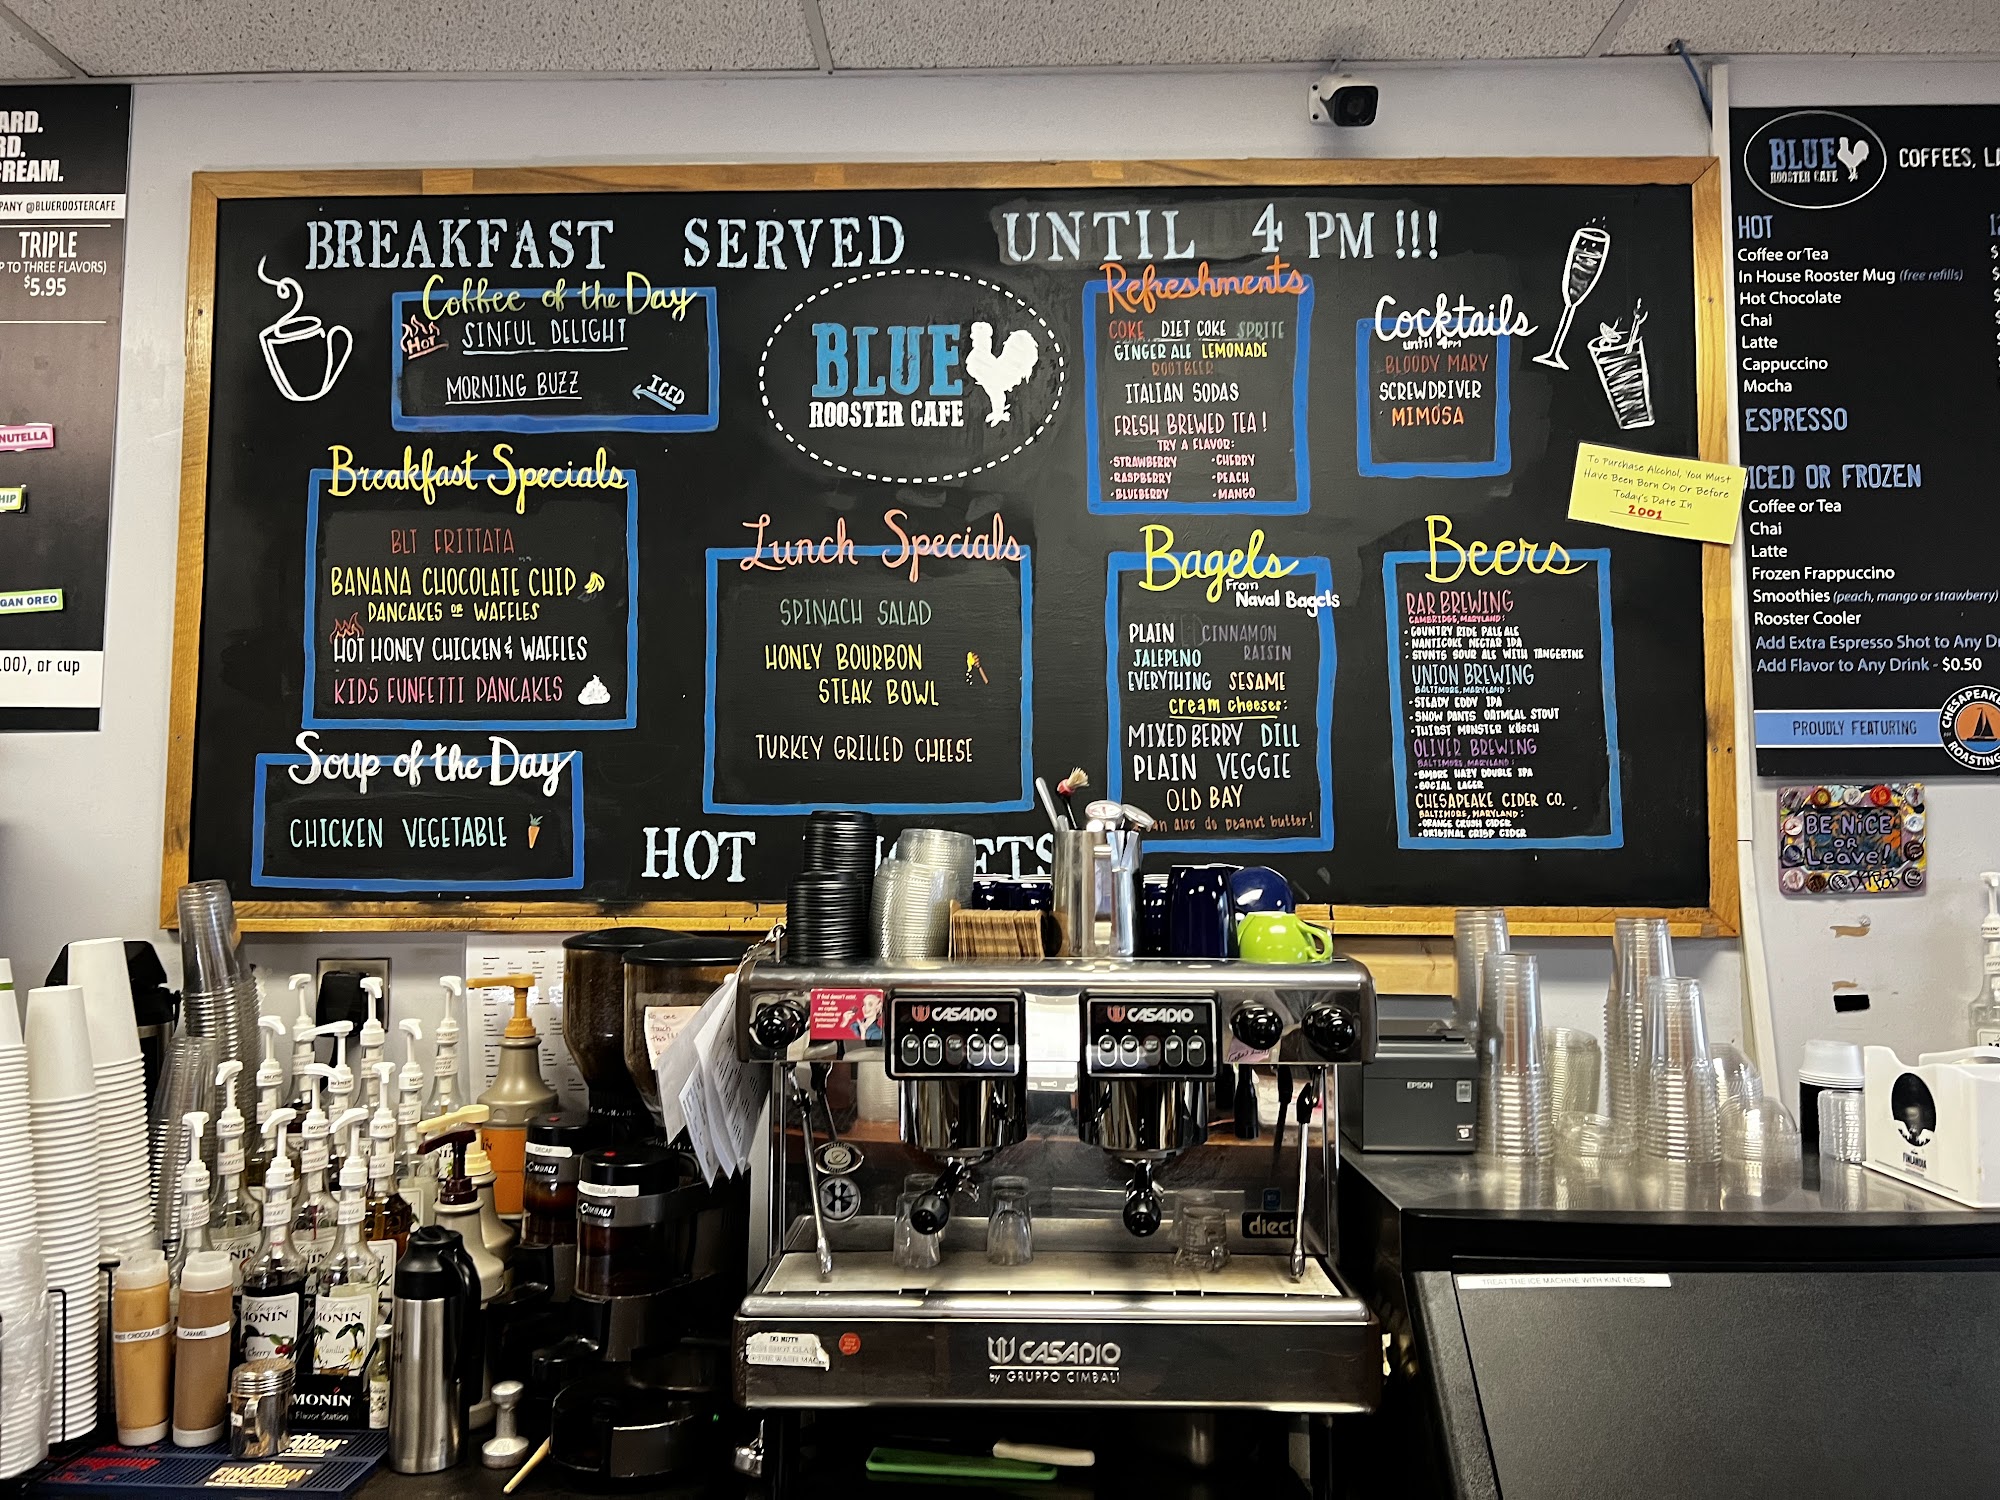 ARD.
RD.
REAM.
PANY @BLUEROOSTERCAFE
TRIPLE
P TO THREE FLAVORS)
$5.95
NUTELLA
HIP
GAN OREO
.00), or cup
BREAKFAST SERVED UNTIL 4 PM !!!
Coffee of the Day
HOT
SINFUL DELIGHT
MORNING BUZZ
ICED
BLUE
ROOSTER CAFE
Refreshments
COKE DIET COKE SPRITE
GINGER ALE LEMONADE
ROOTBEER
ITALIAN SODAS
FRESH BREWED TEA!
TRY A FLAVOR:
•STRAWBERRY •CHERRY
•RASPBERRY •PEACH
•BLUEBERRY •MANGO
Cocktails
until 4pm
BLOODY MARY
SCREWDRIVER
MIMOSA
To Purchase Alcohol, You Must
Have Been Born On Or Before
Today's Date In
2001
Breakfast Specials
BLT FRITTATA
BANANA CHOCOLATE CHIP
PANCAKES OR WAFFLES
HOT HONEY CHICKEN & WAFFLES
KIDS FUNFETTI PANCAKES
Soup of the Day
CHICKEN VEGETABLE
Lunch Specials
SPINACH SALAD
HONEY BOURBON
STEAK BOWL
TURKEY GRILLED CHEESE
HOT
Bagels
From
Naval Bagels
PLAIN CINNAMON
RAISIN
JALEPENO
EVERYTHING SESAME
cream cheeses:
MIXED BERRY DILL
PLAIN VEGGIE
OLD BAY
an also do peanut butter!
Beers
RAR BREWING
CAMBRIDGE, MARYLAND:
•COUNTRY RIDE PALE ALE
•NANTICOKE NECTAR IPA
•STUNTS SOUR ALE WITH TANGERINE
UNION BREWING
BALTIMORE, MARYLAND:
•STEADY EDDY IPA
•SNOW PANTS OATMEAL STOUT
•THIRST MONSTER KÖSCH
OLIVER BREWING
BALTIMORE, MARYLAND:
•BMORE HAZY DOUBLE IPA
•SOCIAL LAGER
CHESAPEAKE CIDER CO.
BALTIMORE, MARYLAND:
•ORANGE CRUSH CIDER
•ORIGINAL CRISP CIDER
BLUE
ROOSTER CAFE
COFFEES, LA
HOT
Coffee or Tea
In House Rooster Mug (free refills)
Hot Chocolate
Chai
Latte
Cappuccino
Mocha
ESPRESSO
ICED OR FROZEN
Coffee or Tea
Chai
Latte
Frozen Frappuccino
Smoothies (peach, mango or strawberry)
Rooster Cooler
Add Extra Espresso Shot to Any Dr
Add Flavor to Any Drink - $0.50
PROUDLY FEATURING
CHESAPEAKE
ROASTING
BE NiCE
OR
Leave!
CASADIO
CASADIO
EPSON
DECAF
CIMBALI
REGULAR
CIMBALI
dieci
TREAT THE ICE MACHINE WITH KINDNESS
FINLANDIA
CASADIO
by GRUPPO CIMBALI
CARAMEL
MONIN
Cherry
MONIN
Vanilla
MONIN
Flavor Station
FINLANDIA